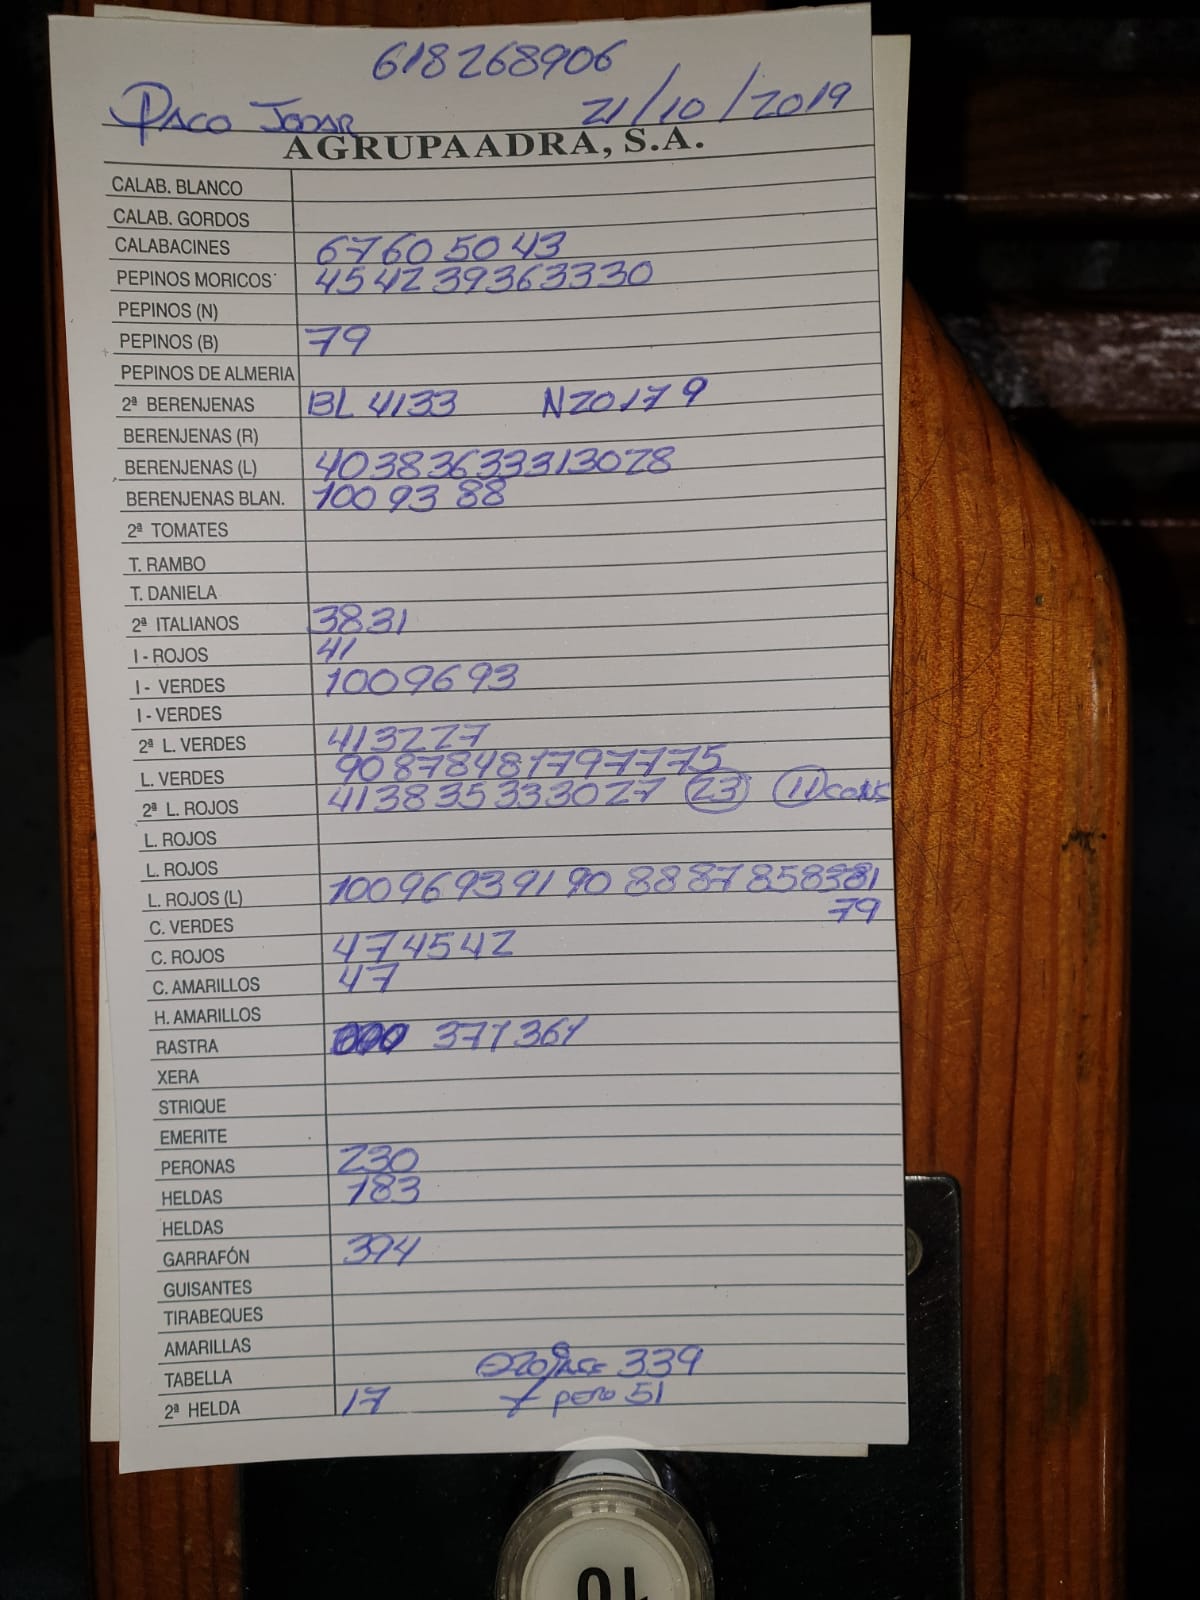 618268906
PACO JODAR 21/10/2019
AGRUPAADRA, S.A.
CALAB. BLANCO
CALAB. GORDOS
CALABACINES 67 60 50 43
PEPINOS MORICOS 45 42 39 36 33 30
PEPINOS (N)
PEPINOS (B) 79
PEPINOS DE ALMERIA
2ª BERENJENAS BL 41 33 N 20 17 9
BERENJENAS (R)
BERENJENAS (L) 40 38 36 33 31 30 28
BERENJENAS BLAN. 100 93 88
2ª TOMATES
T. RAMBO
T. DANIELA
2ª ITALIANOS 38 31
I - ROJOS 41
I - VERDES 100 96 93
I - VERDES
2ª L. VERDES 41 32 27
L. VERDES 90 87 84 81 79 77 75
2ª L. ROJOS 41 38 35 33 30 27 23 11 CONS
L. ROJOS
L. ROJOS
L. ROJOS (L) 100 96 93 91 90 88 87 85 83 81
C. VERDES 79
C. ROJOS 47 45 42
C. AMARILLOS 47
H. AMARILLOS
RASTRA 371 361
XERA
STRIQUE
EMERITE
PERONAS 230
HELDAS 183
HELDAS
GARRAFÓN 394
GUISANTES
TIRABEQUES
AMARILLAS
TABELLA 339
2ª HELDA 17 pero 51
10